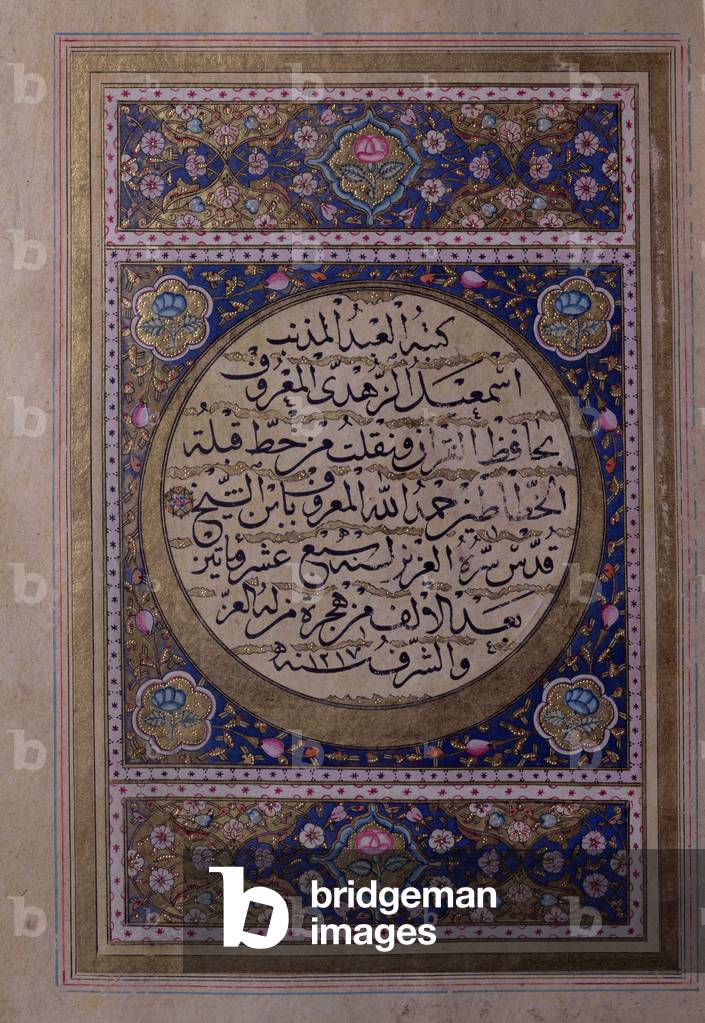 كتبه العبد المذنب
اسمعيل الزهدى المعروف
بحافظ القرآن ونقلت من خط قبلة
الخطاطين حمد الله المعروف بابن الشيخ
قدس سره العزيز لسنه سبع عشر ومأتين
بعد الألف من هجرة من له العز
والشرف سنه ١٢١٧
bridgeman
images